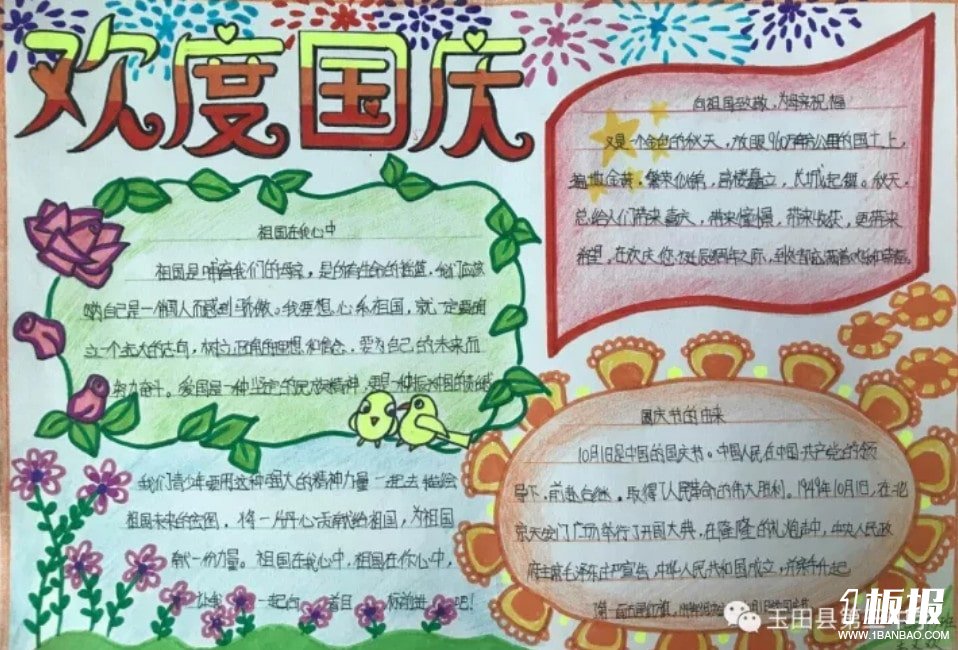 欢度国庆
向祖国致敬,为母亲祝福
又是一个金色的秋天,放眼960万平方公里的国土上,
遍地金黄,繁荣似锦,高楼矗立,长城起舞。秋天,
总给人们带来喜庆,带来憧憬,带来收获,更带来
希望。在欢庆您
祖国在我心中
祖国是哺育我们的母亲,是的有生命的摇篮,我们应该
哟自己是一个中国人而感到骄傲。我要想心系祖国,就一定要树
立一个远大的志向,树立正确的理想和信念,要为自己的未来而
努力奋斗。爱国是一种坚定的民族精神,更是一种振兴祖国的责任感
我们青少年要用这种强大的精神力量一起去描绘
祖国未来的蓝图。将一片丹心贡献给祖国,为祖国
献一份力量。祖国在我心中,祖国在你心中,
让我 一起向 着目 标前进吧!
国庆节的由来
10月1日是中国的国庆节。中国人民在中国共产党的领
导下,前赴后继。取得了人民革命的伟大胜利。1949年10月1日,在北
京天安门广场举行了开国大典,在隆隆的礼炮声中,中央人民政
府主席毛泽东庄严宣告,中华人民共和国成立,并亲手升起
了第一面五星红旗。
玉田县第
1板报
WWW.1BANBAO.COM